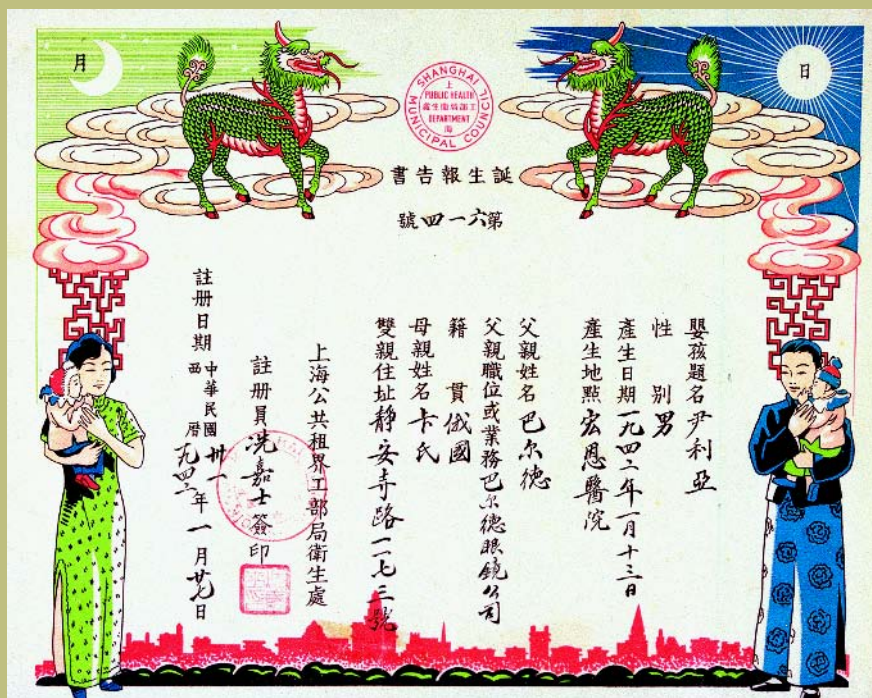 日
月
SHANGHAI MUNICIPAL COUNCIL
上
PUBLIC HEALTH
工部局衛生處
DEPARTMENT
海
誕生報告書
第六一四號
嬰孩題名尹利亞
性別男
產生日期一九四二年一月十三日
產生地點宏恩醫院
父親姓名巴尔德
父親職位或業務巴尔德眼鏡公司
籍貫俄國
母親姓名卡氏
雙親住址靜安寺路一一七三號
上海公共租界工部局衛生處
註册員冼嘉士簽印
註册日期
中華民國卅一
西曆一九四二
年一月日